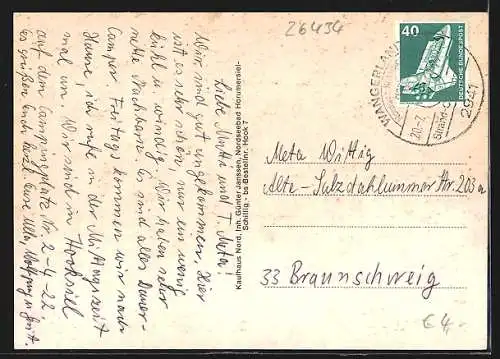 26434
40
DEUTSCHE BUNDESPOST
WANGERLAND
2941
Liebe Mutti und T. Meta!
Wir sind gut angekommen. Hier
ist es sehr schön, nur ein wenig
kühl u. windig. Wir haben sehr
nette Nachbarn. Es sind alles Dauer-
Camper. Freitags kommen wir nach
Hause, ich rufe in der Mittagszeit
mal an. Wir sind in Hooksiel
auf dem Campingplatz Nr. 2-4-22.
Es grüßen Euch herzl. Eure Ulla, Wolfgang u. Gerit.
Kaufhaus Nord, Inh. Günter Janssen, Nordseebad Horumersiel-
Schillig, - bs Bestellnr. Hook 7
Meta Wittig
Alte-Salzdahlummer Str. 203a
33 Braunschweig
€ 4,-